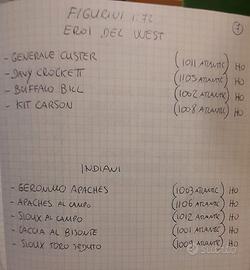 FIGURINI 1:72
7
EROI DEL WEST
- GENERALE CUSTER (1011 ATLANTIC) HO
- DAVY CROCKETT (1105 ATLANTIC) HO
- BUFFALO BILL (1002 ATLANTIC) HO
- KIT CARSON (1008 ATLANTIC) HO
INDIANI
- GERONIMO APACHES (1003 ATLANTIC) HO
- APACHES AL CAMPO (1106 ATLANTIC) HO
- SIOUX AL CAMPO (1012 ATLANTIC) HO
- CACCIA AL BISONTE (1001 ATLANTIC) HO
- SIOUX TORO SEDUTO (1009 ATLANTIC) HO